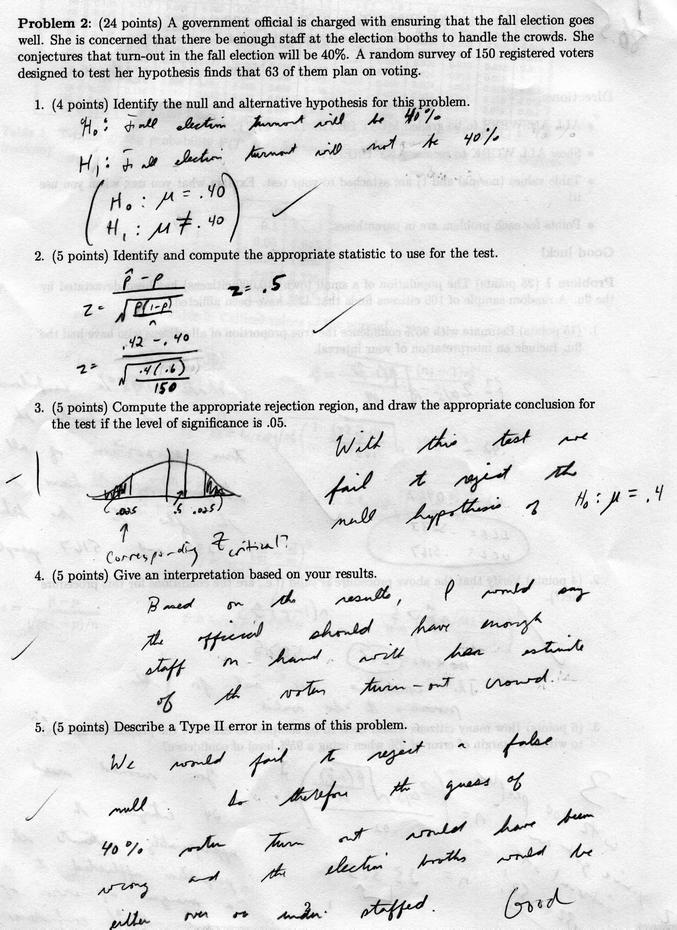 Problem 2: (24 points) A government official is charged with ensuring that the fall election goes
well. She is concerned that there be enough staff at the election booths to handle the crowds. She
conjectures that turn-out in the fall election will be 40%. A random survey of 150 registered voters
designed to test her hypothesis finds that 63 of them plan on voting.
1. (4 points) Identify the null and alternative hypothesis for this problem.
H₀: Fall election turnout will be 40%
H₁: Fall election turnout will not be 40%
H₀: μ = .40
H₁: μ ≠ .40
2. (5 points) Identify and compute the appropriate statistic to use for the test.
p̂ - p
z = √ p(1-p) z = .5
n
.42 - .40
z = √ .4(.6)
150
3. (5 points) Compute the appropriate rejection region, and draw the appropriate conclusion for
the test if the level of significance is .05.
-1
With this test we
fail to reject the
null hypothesis of H₀: μ = .4
.025 .5 .025
Corresponding Z critical?
4. (5 points) Give an interpretation based on your results.
Based on the results, I would say
the official should have enough
staff on hand with her estimate
of the voter turn-out crowd.
5. (5 points) Describe a Type II error in terms of this problem.
We would fail to reject a false
null. So therefore the guess of
40% voter turn out would have been
wrong and the election booths would be
either over or under staffed. Good
2